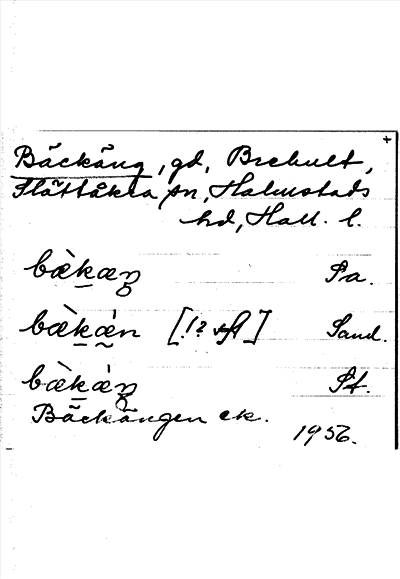 Bäckäng, gd, Brehult,
Slättåkra sn, Halmstads
hd, Hall. l.
bæ̀kæŋ Pa.
bæ̀kǽn [!? sfl] Sand.
bæ̀kæ̀ŋ St.
Bäckängen ek.
1956.